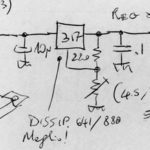 3)
REG
317
10µ
220
.1
(45,
DISSIP. 641/880
Meglio!